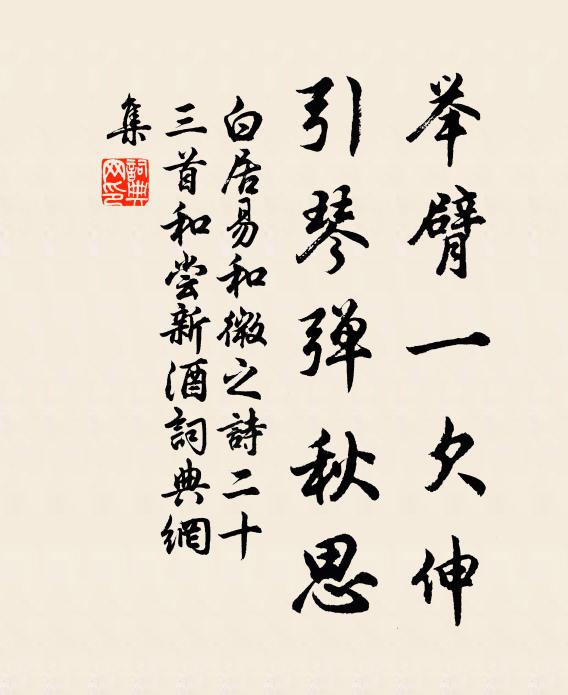 举臂一欠伸
引琴弹秋思
白居易和微之詩二十
三首和尝新酒詞典網
集
詞典
网印